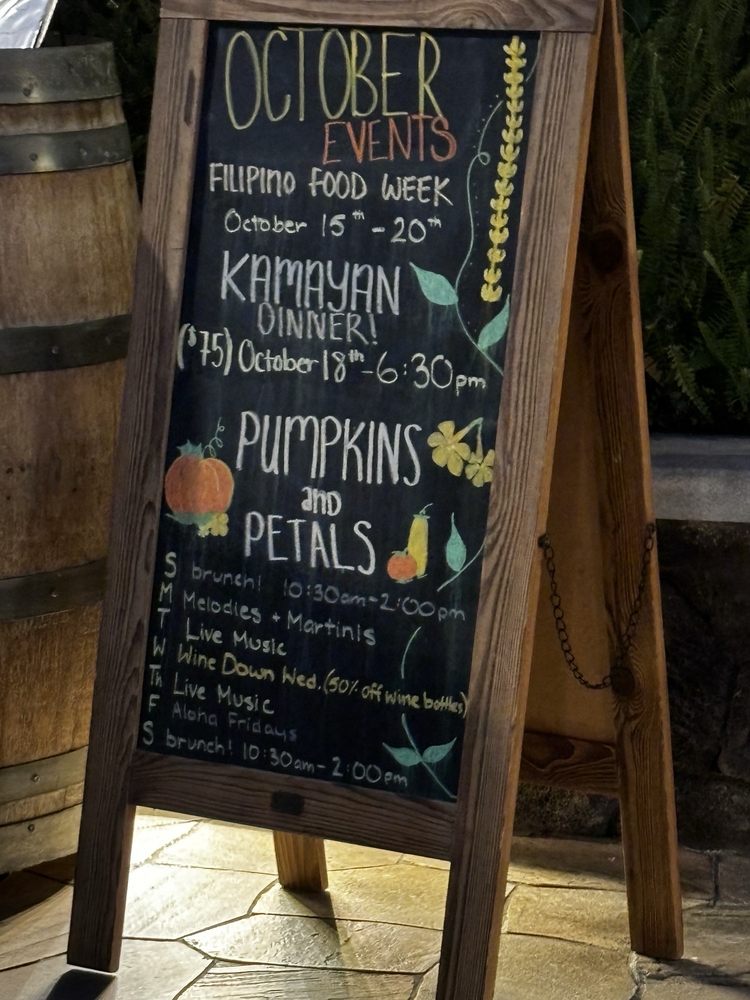 OCTOBER
EVENTS
FILIPINO FOOD WEEK
October 15th - 20th
KAMAYAN
DINNER!
($75) October 18th - 6:30pm
PUMPKINS
and
PETALS
S brunch! 10:30am - 2:00pm
M Melodies + Martinis
T Live Music
W Wine Down Wed. (50% off wine bottles)
Th Live Music
F Aloha Fridays
S brunch! 10:30am - 2:00pm